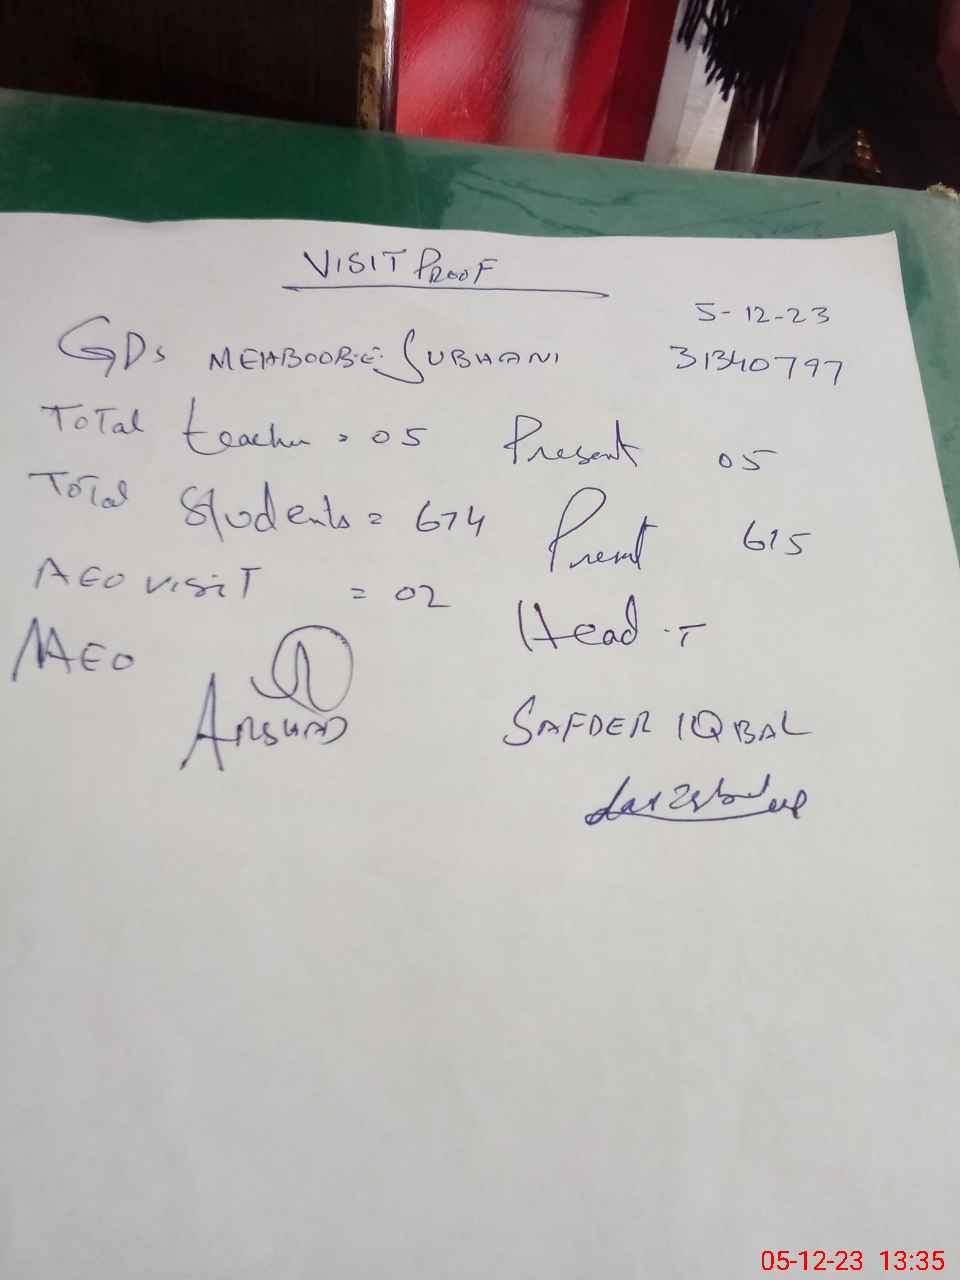 VISIT PROOF
5-12-23
GDs MEHBOOBE SUBHANI 31340797
TOTAL teacher = 05 Present 05
TOTAL Students = 674 Present 615
AEO VISIT = 02 Head .T
AEO
ARSHAD SAFDER IQBAL
05-12-23 13:35